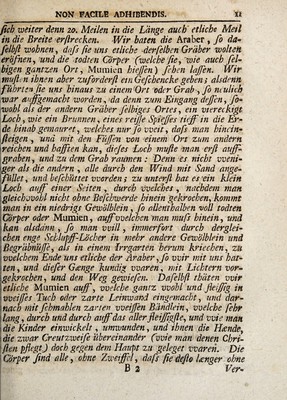 NON FACILE ADHIBENDIS. 11
sich weiter denn 20. Meilen in die Länge auch etliche Meil
in die Breite erstrecken. Wir baten die Araber, so da-
selbst wohnen, dass sie uns etliche derselben Gräber wolten
eröfnen, und die todten Cörper (welche sie, wie auch sel-
bigen gantzen Ort, Mumien hiessen) sehen lassen. Wir
musten ihnen aber zuforderst ein Geschencke geben; alsdenn
führten sie uns hinaus zu einem Ort oder Grab, so neulich
war auffgemacht worden, da denn zum Eingang dessen, so-
wohl als der andern Gräber selbiges Ortes, ein viereckigt
Loch, wie ein Brunnen, eines reiss Spiesses tieff in die Er-
de hinab gemauret, welches nur so weit, dass man hinein-
steigen, und mit den Füssen von einem Ort zum andern
reichen und hafften kan, dieses Loch muste man erst auff-
graben, und zu dem Grab raumen: Denn es nicht weni-
ger als die andern, alle durch den Wind mit Sand ange-
füllet, und beschüttet worden; zu unterst hat es ein klein
Loch auff einer Seiten, durch welches, nachdem man
gleichwohl nicht ohne Beschwerde hinein gekrochen, kommt
man in ein niedrige Gewölblein, so allenthalben voll todten
Cörper oder Mumien, auff welchen man muss hinein, und
kan alsdann, so man will, immerfort durch derglei-
chen enge Schlupff-Löcher in mehr andere Gewölblein und
Begräbnüsse, als in einem Irrgarten herum kriechen, zu
welchem Ende uns etliche der Araber, so wir mit uns hat-
ten, und dieser Gænge kundig waren, mit Lichtern vor-
gekrochen, und den Weg gewiesen. Daselbst thäten wir
etliche Mumien auff, welche gantz wohl und fleissig in
weisses Tuch oder zarte Leinwand eingemacht, und dar-
nach mit schmahlen zarten weissen Bändlein, welche sehr
lang, durch und durch auff das aller fleissigste, und wie man
die Kinder einwickelt, umwunden, und ihnen die Hænde,
die zwar Creutzweise übereinander (wie man denen Chri-
sten pflegt) doch gegen dem Haupt zu geleget waren. Die
Cörper sind alle, ohne Zweiffel, dass sie desto længer ohne
B 2 Ver-